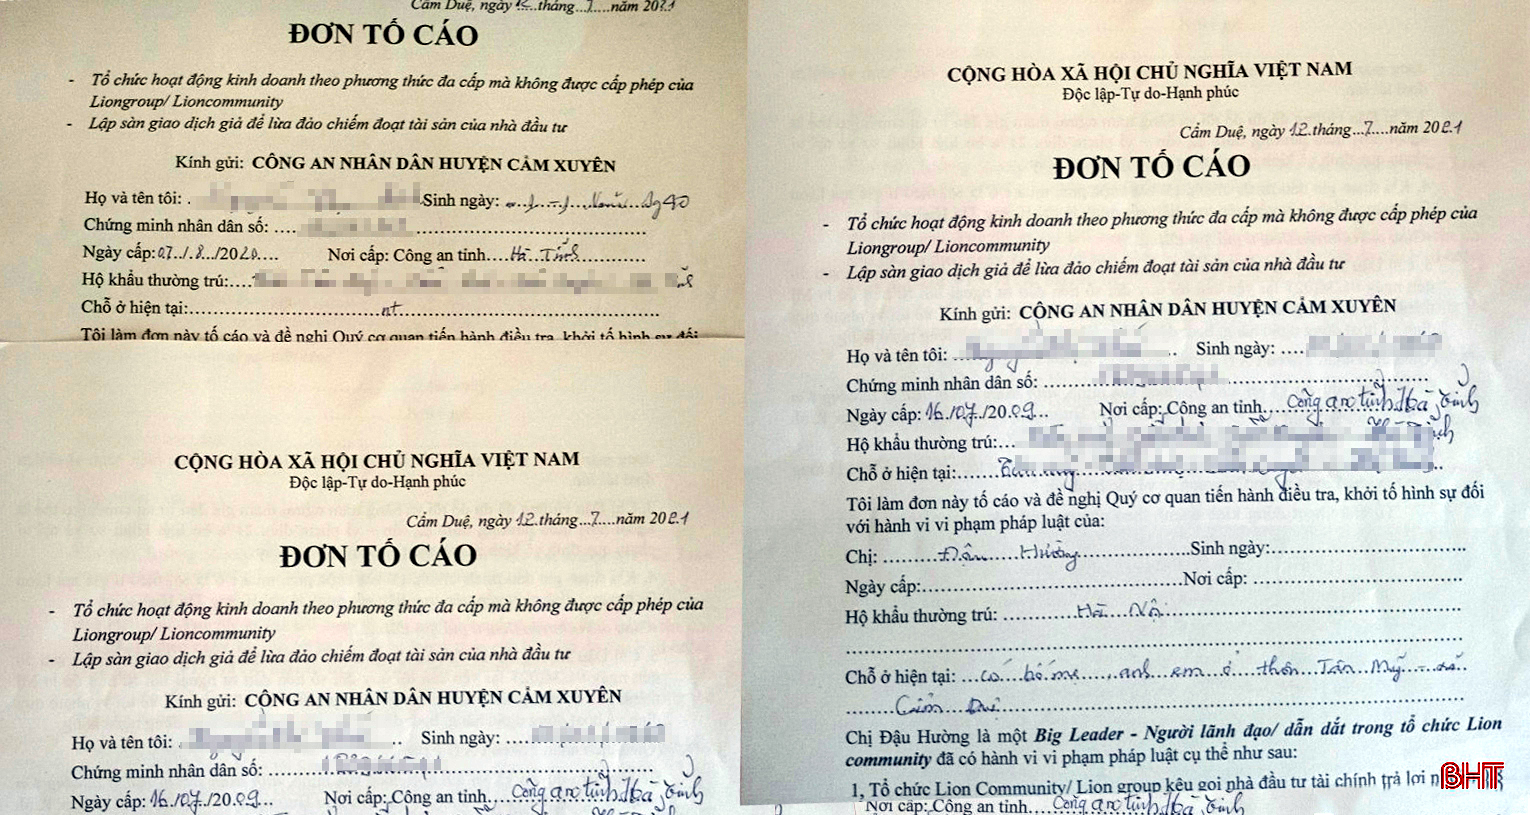 Cẩm Duệ, ngày 12 tháng...7....năm 2021
ĐƠN TỐ CÁO
- Tổ chức hoạt động kinh doanh theo phương thức đa cấp mà không được cấp phép của
Liongroup/ Lioncommunity
- Lập sàn giao dịch giả để lừa đảo chiếm đoạt tài sản của nhà đầu tư
Kính gửi: CÔNG AN NHÂN DÂN HUYỆN CẨM XUYÊN
Họ và tên tôi: Sinh ngày:
Chứng minh nhân dân số:
Ngày cấp: 07../.8./2020.... Nơi cấp: Công an tỉnh....Hà Tĩnh
Hộ khẩu thường trú:
Chỗ ở hiện tại: nt
Tôi làm đơn này tố cáo và đề nghị Quý cơ quan tiến hành điều tra, khởi tố hình sự đối
CỘNG HÒA XÃ HỘI CHỦ NGHĨA VIỆT NAM
Độc lập-Tự do-Hạnh phúc
Cẩm Duệ, ngày 12.tháng...7....năm 2021
ĐƠN TỐ CÁO
- Tổ chức hoạt động kinh doanh theo phương thức đa cấp mà không được cấp phép của
Liongroup/ Lioncommunity
- Lập sàn giao dịch giả để lừa đảo chiếm đoạt tài sản của nhà đầu tư
Kính gửi: CÔNG AN NHÂN DÂN HUYỆN CẨM XUYÊN
Họ và tên tôi: Sinh ngày:
Chứng minh nhân dân số:
Ngày cấp: 16./07./20.09... Nơi cấp: Công an tỉnh....Công an tỉnh Hà Tĩnh
CỘNG HÒA XÃ HỘI CHỦ NGHĨA VIỆT NAM
Độc lập-Tự do-Hạnh phúc
Cẩm Duệ, ngày 12.tháng...7....năm 2021
ĐƠN TỐ CÁO
- Tổ chức hoạt động kinh doanh theo phương thức đa cấp mà không được cấp phép của
Liongroup/ Lioncommunity
- Lập sàn giao dịch giả để lừa đảo chiếm đoạt tài sản của nhà đầu tư
Kính gửi: CÔNG AN NHÂN DÂN HUYỆN CẨM XUYÊN
Họ và tên tôi: Sinh ngày:
Chứng minh nhân dân số:
Ngày cấp: 16./07./20.09... Nơi cấp: Công an tỉnh....Công an tỉnh Hà Tĩnh
Hộ khẩu thường trú:
Chỗ ở hiện tại:
Tôi làm đơn này tố cáo và đề nghị Quý cơ quan tiến hành điều tra, khởi tố hình sự đối
với hành vi vi phạm pháp luật của:
Chị: Đậu Hường Sinh ngày:
Ngày cấp: Nơi cấp:
Hộ khẩu thường trú: Hà Nội
Chỗ ở hiện tại: có bố mẹ, anh em ở thôn Tân Mỹ - xã
Cẩm Duệ
Chị Đậu Hường là một Big Leader - Người lãnh đạo/ dẫn dắt trong tổ chức Lion
community đã có hành vi vi phạm pháp luật cụ thể như sau:
1, Tổ chức Lion Community/ Lion group kêu gọi nhà đầu tư tài chính trả lợi
Nơi cấp: Công an tỉnh....Công an tỉnh Hà Tĩnh
BHT